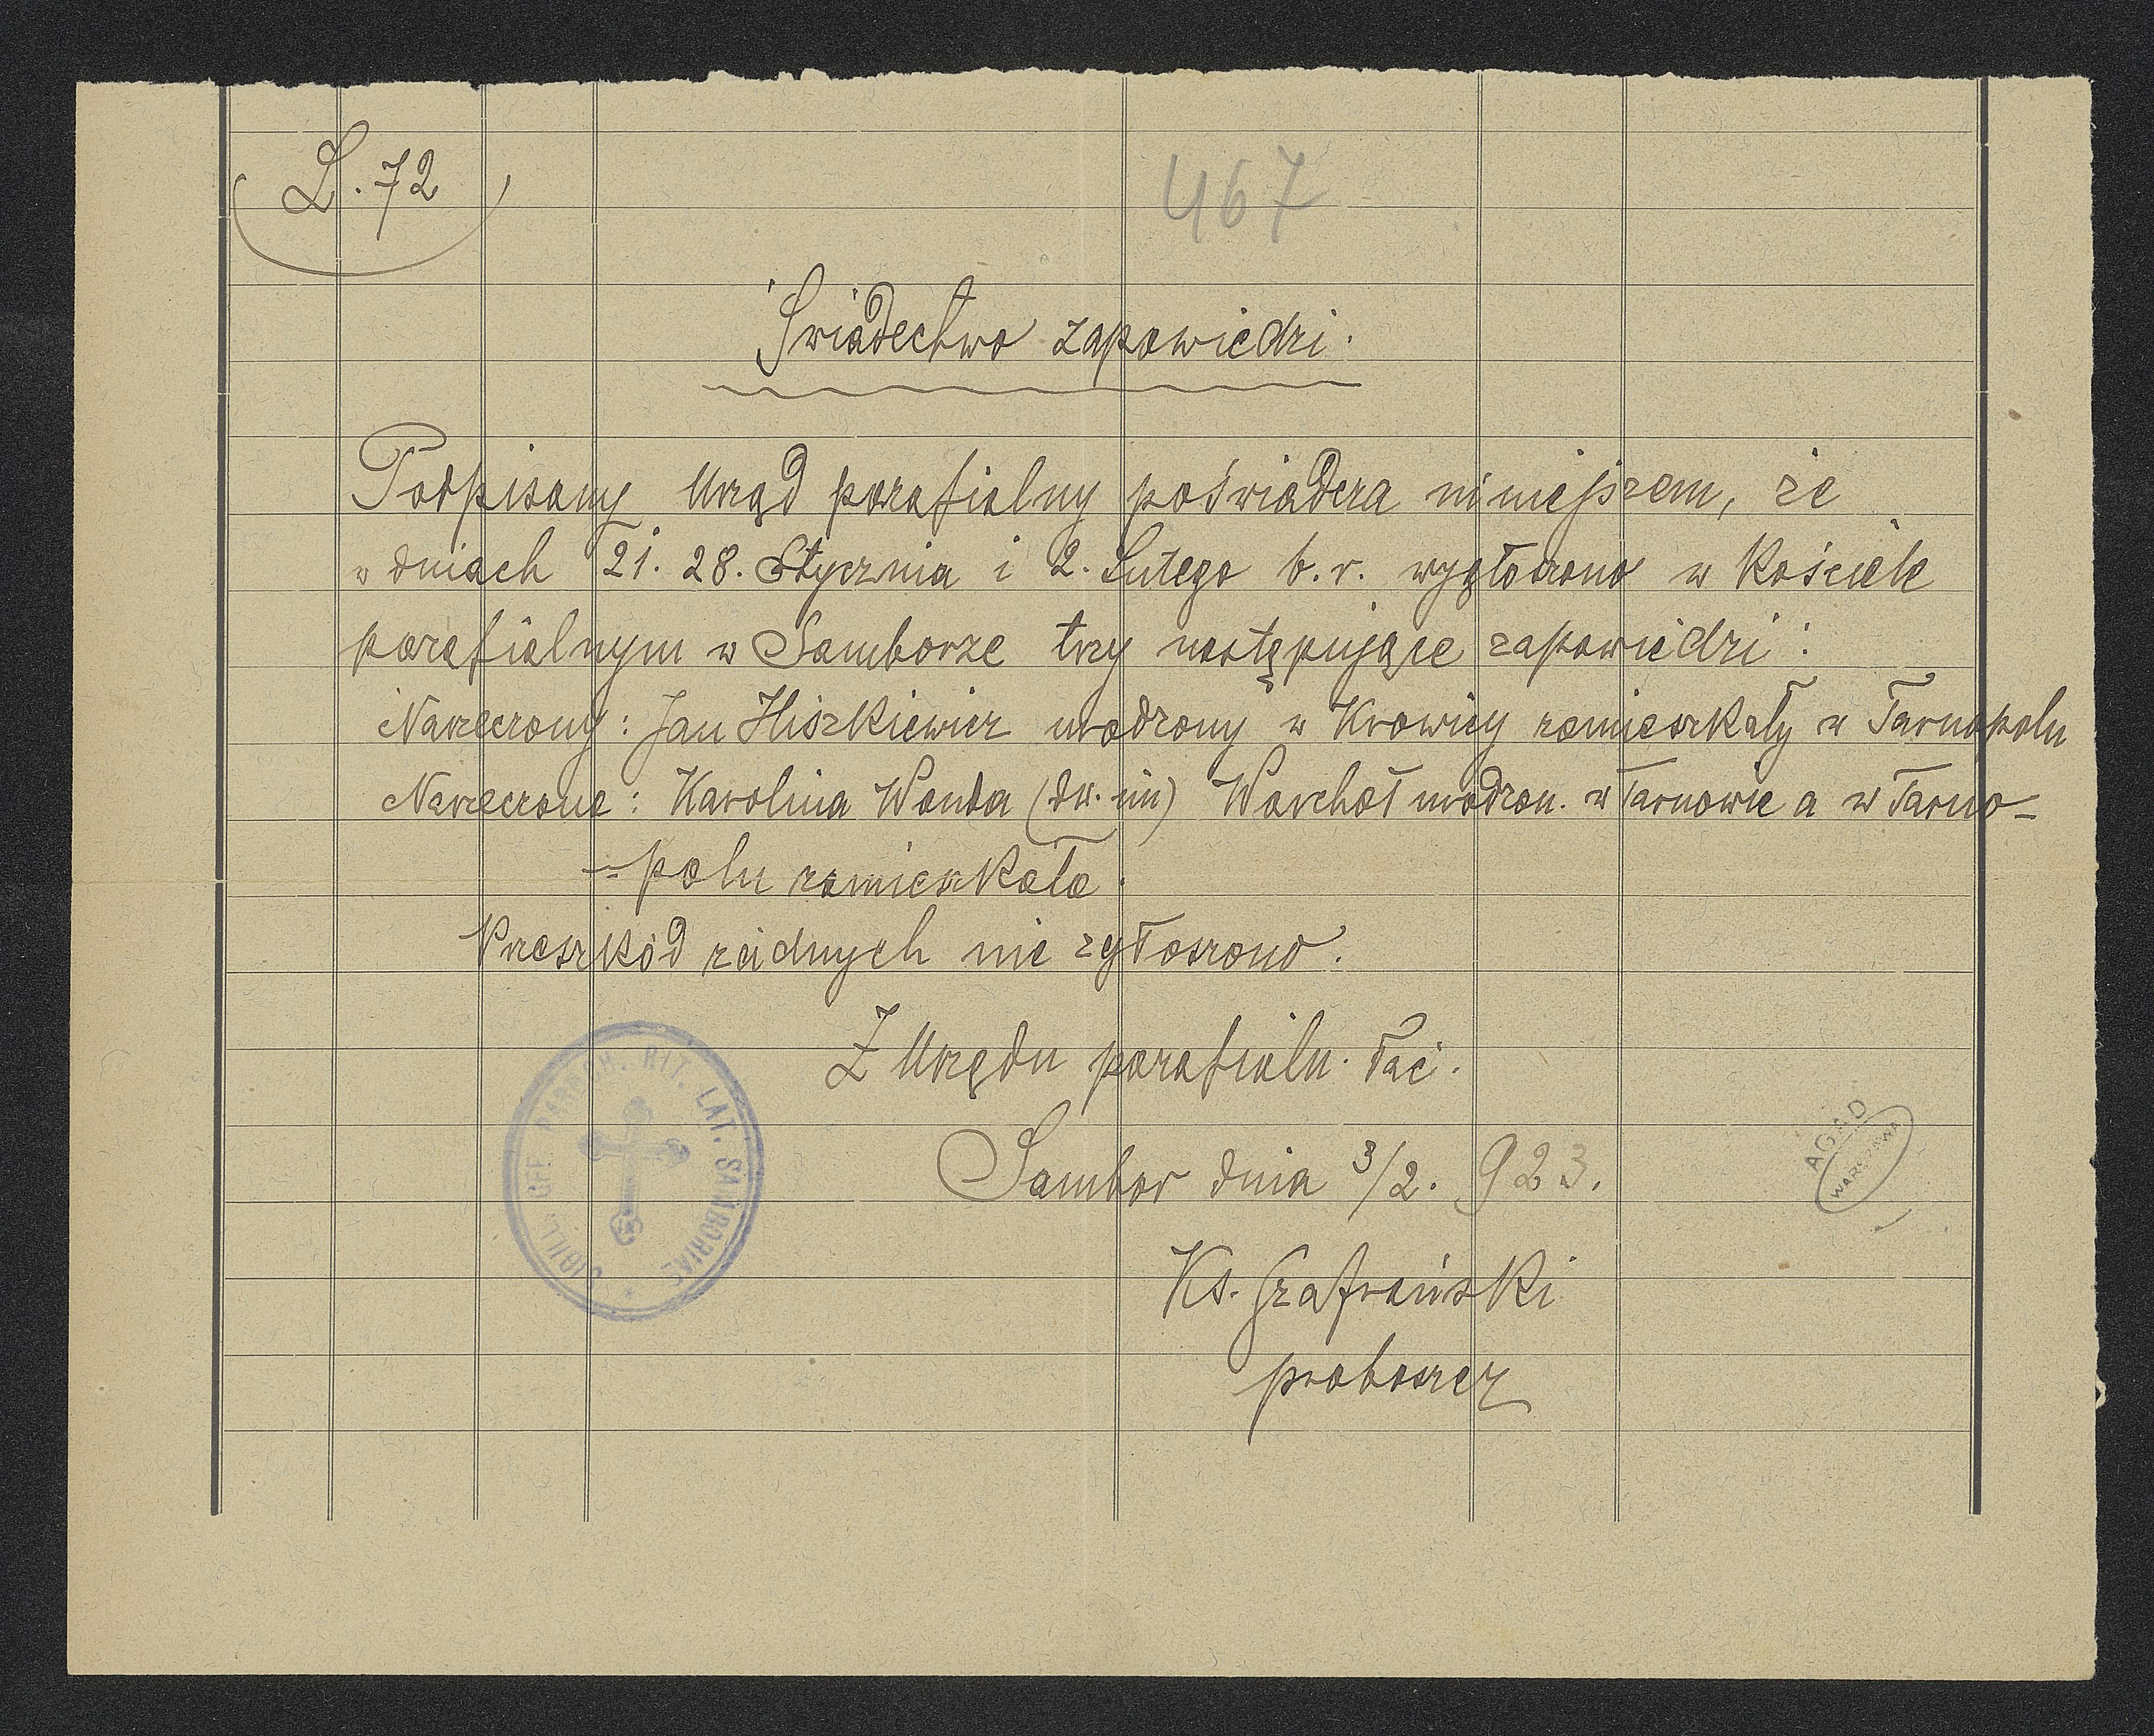 L. 72
467
Świadectwo zapowiedzi.
Podpisany Urząd parafialny poświadcza niniejszem, że
w dniach 21. 28. Stycznia i 2. Lutego b. r. wygłoszono w Kościele
parafialnym w Samborze trzy następujące zapowiedzi:
Narzeczony: Jan Hiszkiewicz urodzony w Krowicy zamieszkały w Tarnopolu
Narzeczona: Karolina Wanda (dw. im) Warchoł urodzon. w Tarnowie a w Tarno-
-polu zamieszkała.
Przeszkód żadnych nie zgłoszono.
Z Urzędu parafialn. łać.
Sambor dnia 3/2. 923.
Ks. Szafrański
proboszcz
SIGILL. OFF. PAROCH. RIT. LAT. SAMBORIAE
AGAD
WARSZAWA